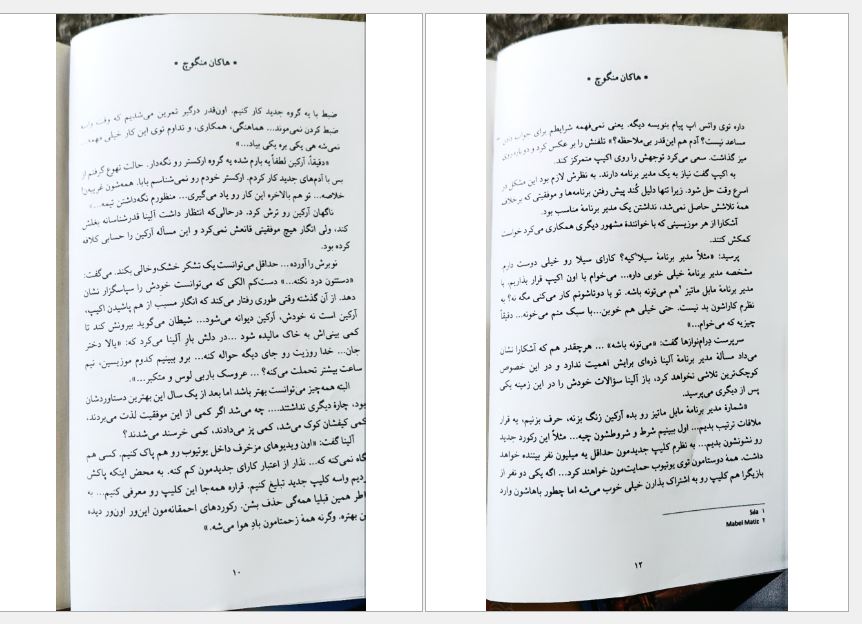 • هاکان منگوچ •
ضبط با یه گروه جدید کار کنیم. اون‌قدر درگیر تمرین می‌شدیم که وقت واسه
ضبط کردن نمی‌موند... هماهنگی، همکاری، و تداوم توی این کار خیلی مهمه...
نمی‌شه هی یکی بره یکی بیاد...»
«دقیقاً، آرکین لطفاً یه بارم شده یه گروه ارکستر رو نگه‌دار. حالت تهوع گرفتم از
بس با آدم‌های جدید کار کردم. ارکستر خودم رو نمی‌شناسم بابا. همه‌شون غریبه‌ن!
خلاصه... تو هم بالاخره این کار رو یاد می‌گیری... منظورم نگه‌داشتن تیمه...»
ناگهان آرکین رو ترش کرد. درحالی‌که انتظار داشت آلینا قدرشناسانه بغلش
کند، ولی انگار هیچ موفقیتی قانعش نمی‌کرد و این مسأله آرکین را حسابی کلافه
کرده بود.
نوبرش را آورده... حداقل می‌توانست یک تشکر خشک‌وخالی بکند. می‌گفت:
«دستتون درد نکنه...» دست‌کم الکی که می‌توانست خودش را سپاسگزار نشان
دهد. از آن گذشته وقتی طوری رفتار می‌کند که انگار مسبب از هم پاشیدن اکیپ،
آرکین است نه خودش، آرکین دیوانه می‌شود... شیطان می‌گوید بیرونش کند تا
کمی بینی‌اش به خاک مالیده شود ...در دلش بارِ آلینا می‌کرد که: «یالا دختر
جان... خدا روزیت رو جای دیگه حواله کنه... برو ببینیم کدوم موزیسین، نیم
ساعت بیشتر تحملت می‌کنه؟ ... عروسک باربی لوس و متکبر...».
البته همه‌چیز می‌توانست بهتر باشد اما بعد از یک سال این بهترین دستاوردشان
بود، چارهٔ دیگری نداشتند.... چه می‌شد اگر کمی از این موفقیت لذت می‌بردند،
کمی کیفشان کوک می‌شد، کمی پز می‌دادند، کمی خرسند می‌شدند؟
آلینا گفت: «اون ویدیوهای مزخرف داخل یوتیوب رو هم پاک کنیم. کسی هم
نگاه نمی‌کنه که... نذار از اعتبار کارای جدیدمون کم کنه. به محض اینکه پاکش
واسه کلیپ جدید تبلیغ کنیم. قراره همه‌جا این کلیپ رو معرفی کنیم... به
همین قبلیا همه‌گی حذف بشن. رکوردهای احمقانه‌مون این‌ور اون‌ور دیده
بهتره. وگرنه همهٔ زحمتامون بادِ هوا می‌شه.»
۱۰
• هاکان منگوچ •
داره توی واتس اپ پیام بنویسه دیگه. یعنی نمی‌فهمه شرایطم برای جواب دادن
مساعد نیست؟ آدم هم این‌قدر بی‌ملاحظه؟» تلفنش را بر عکس کرد و دوباره روی
میز گذاشت. سعی می‌کرد توجهش را روی اکیپ متمرکز کند.
به اکیپ گفت نیاز به یک مدیر برنامه دارند. به نظرش لازم بود این مشکل در
اسرع وقت حل شود. زیرا تنها دلیل کُند پیش رفتن برنامه‌ها و موفقیتی که برخلاف
همهٔ تلاشش حاصل نمی‌شد، نداشتن یک مدیر برنامهٔ مناسب بود.
آشکارا از هر موزیسینی که با خوانندهٔ مشهور دیگری همکاری می‌کرد خواست
کمکش کنند.
پرسید: «مثلاً مدیر برنامهٔ سیلا¹کیه؟ کارای سیلا رو خیلی دوست دارم.
مشخصه مدیر برنامهٔ خیلی خوبی داره... می‌خوام با اون اکیپ قرار بذاریم. یا
مدیر برنامهٔ مابل ماتیز ²هم می‌تونه باشه. تو با دوتاشونم کار می‌کنی مگه نه؟ به
نظرم کاراشون بد نیست. حتی خیلی هم خوبن...با سبک منم می‌خونه... دقیقاً
چیزیه که می‌خوام...»
سرپرست دِرام‌نوازها گفت: «می‌تونه باشه» ... هرچقدر هم که آشکارا نشان
می‌داد مسألهٔ مدیر برنامهٔ آلینا ذره‌ای برایش اهمیت ندارد و در این خصوص
کوچک‌ترین تلاشی نخواهد کرد، باز آلینا سؤالات خودش را در این زمینه یکی
پس از دیگری می‌پرسید.
«شمارهٔ مدیر برنامهٔ مابل ماتیز رو بده آرکین زنگ بزنه، حرف بزنیم، یه قرار
ملاقات ترتیب بدیم... اول ببینیم شرط و شروطشون چیه... مثلاً این رکورد جدید
رو نشونشون بدیم... به نظرم کلیپ جدیدمون حداقل یه میلیون نفر بیننده خواهد
داشت. همهٔ دوستامون توی یوتیوب حمایت‌مون خواهند کرد... اگه یکی دو نفر از
بازیگرا هم کلیپ رو به اشتراک بذارن خیلی خوب می‌شه اما چطور باهاشون وارد
۱ Sıla
۲ Mabel Matiz
۱۲